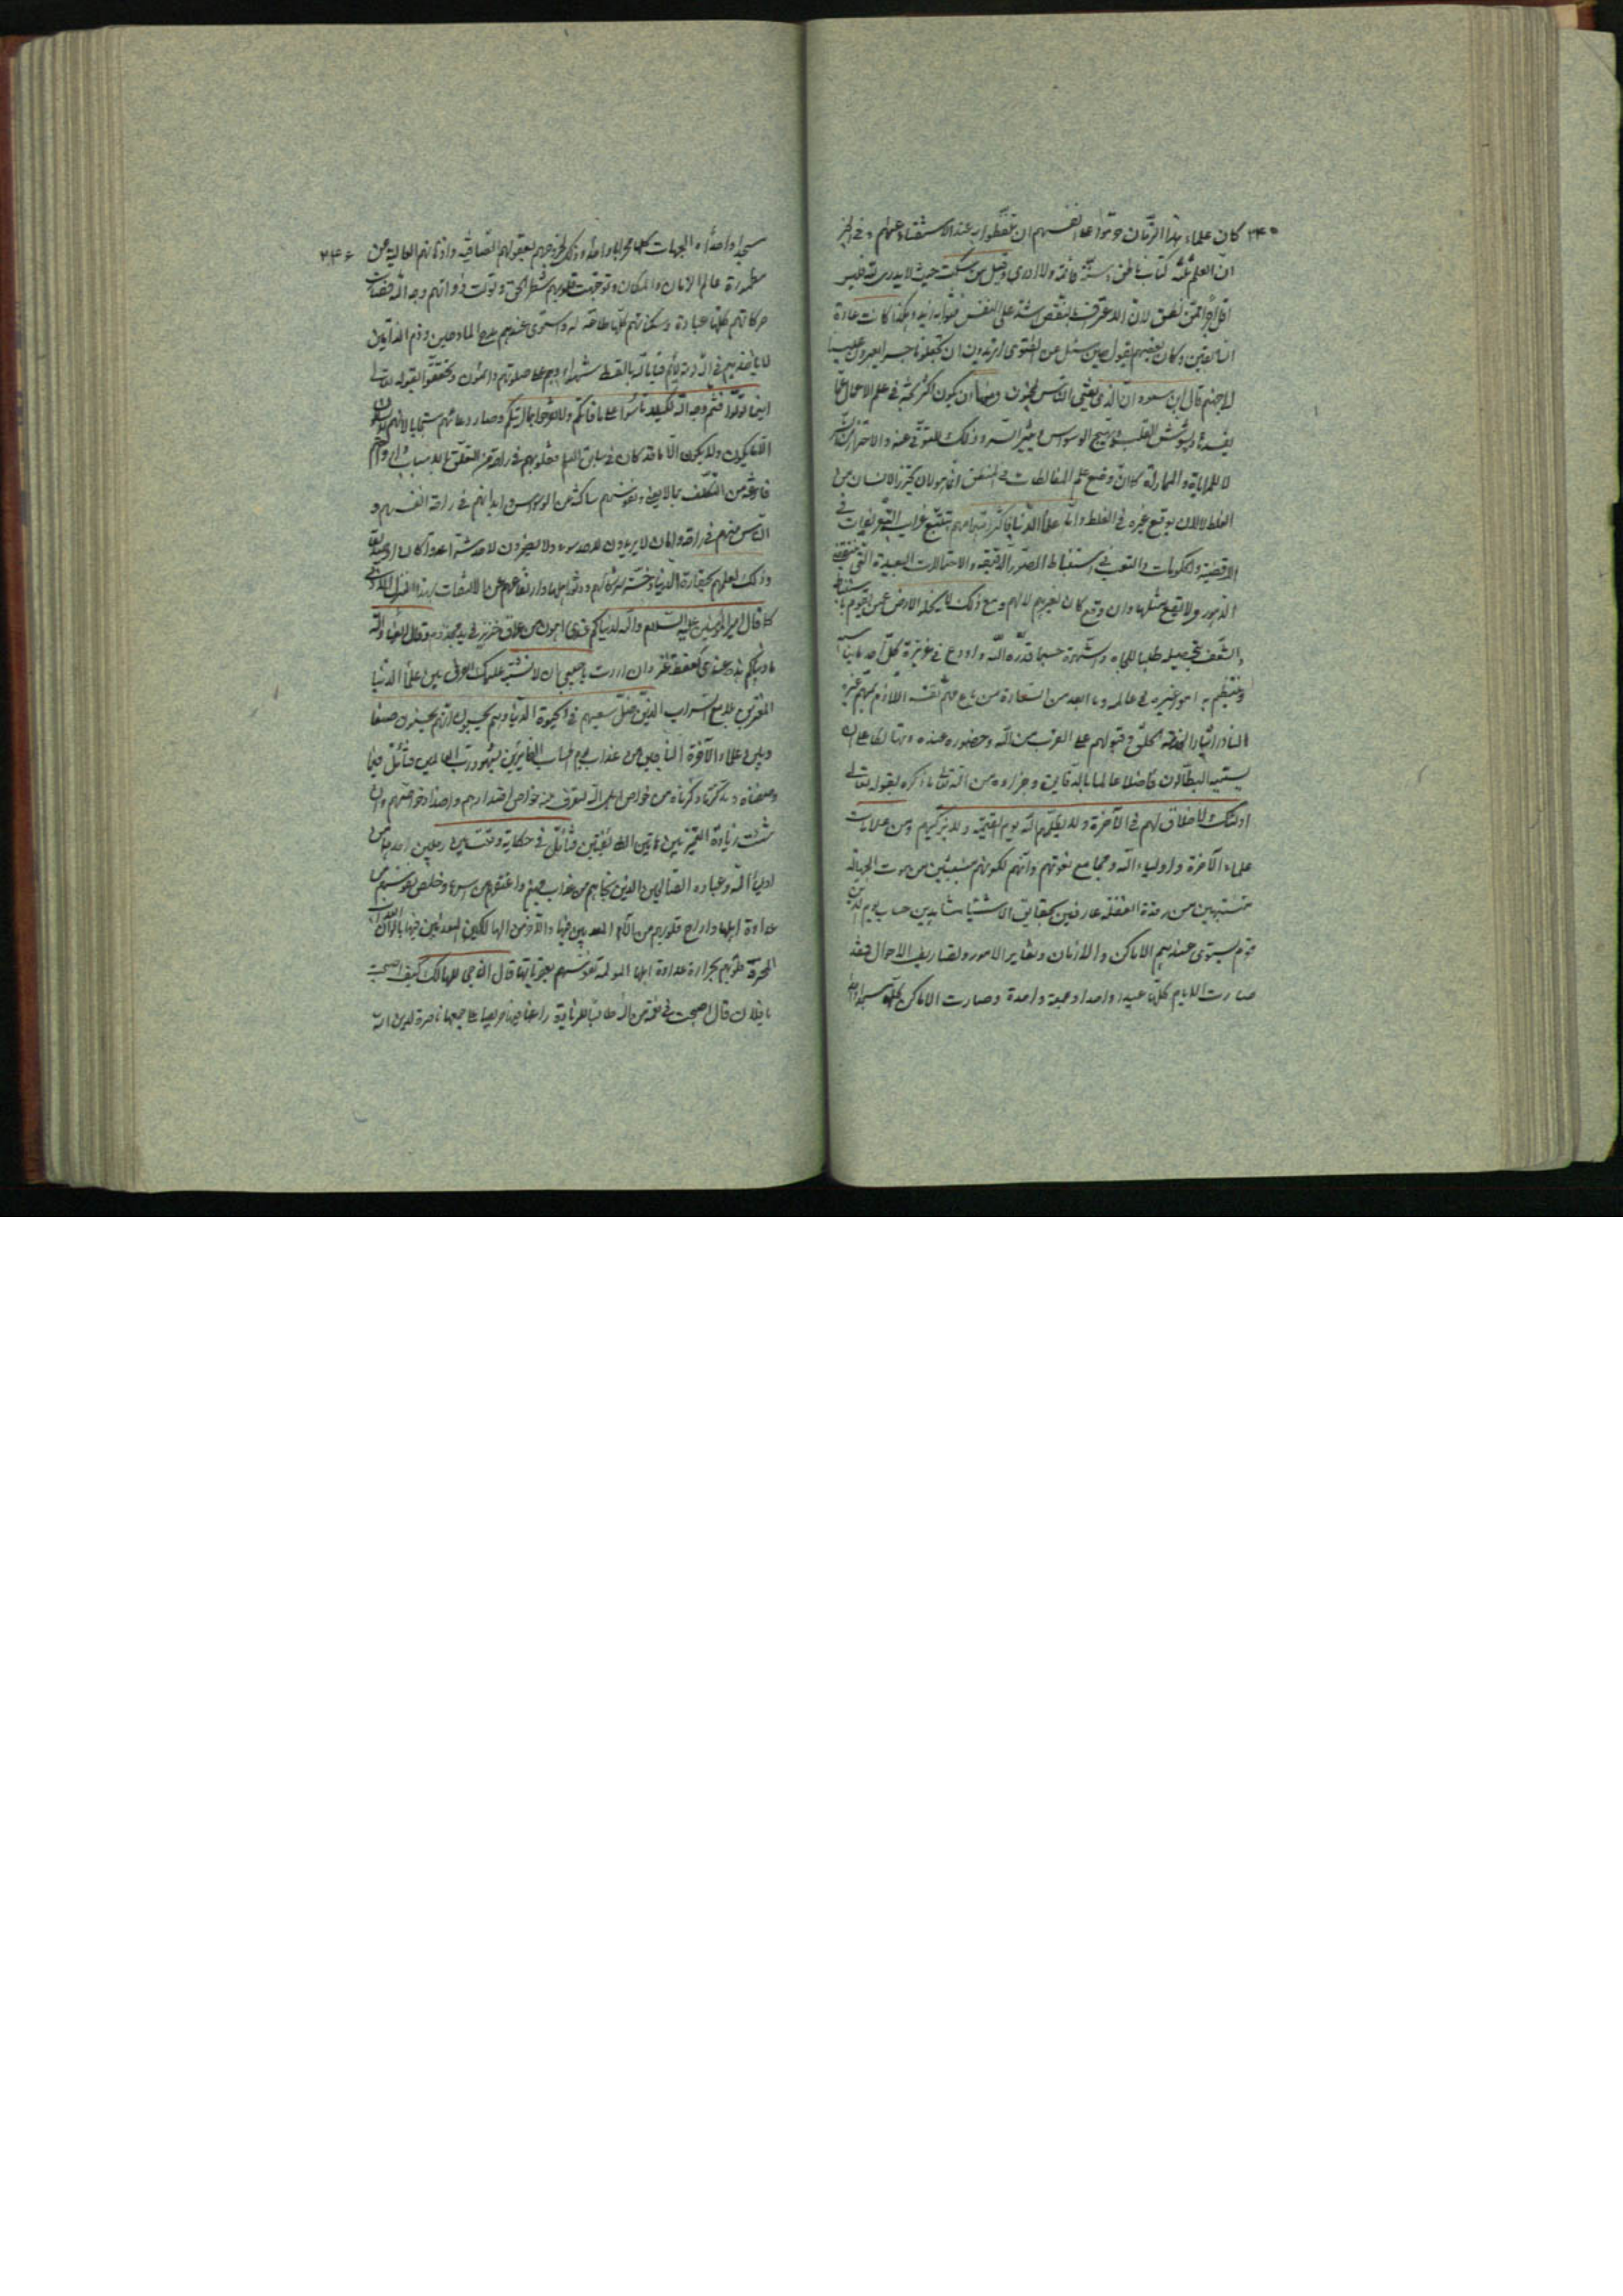 ٢٤٥ كان علماء هذا الزمان حرّموا على انفسهم ان يتلفظوا به عند الاستفتاء عنهم وفي الخبر
ان العلم ثلثة كتاب ناطق وسنة قائمة ولا ادري وقيل من سكت حيث لا يدري لله فليس
اقل اجرا ممن نطق لان الاعتراف بالنقص اشد على النفس وهكذا كانت عادة
السابقين وكان بعضهم يقول حين سئل عن الفتوى تريدون ان تجعلونا جسرا تعبرون علينا
لا جهنم قال ابن مسعود ان الذي يفتي الناس لمجنون ومنها ان يكون اكثر بحثه في علم الاعمال عما
يفسدها ويشوش القلب ويهيج الوسواس ويثير الشر وذلك للتوقي عنه والاحتراز
لا للمراياة والمماراة كما ان وضع علم المغالطات في المنطق انما هو لان يحترز الانسان من
الغلط لا لان يوقع غيره في الغلط واما علماء الدنيا فاكثر اهتمامهم بتتبع غرايب التفريعات في
الاقضية والحكومات والتعب في استنباط الصور الدقيقة والاحتمالات البعيدة التي تنقضي
الدهور ولا يقع مثلها وان وقع كان لغيرهم لا لهم ومع ذلك لا يخلو الارض عمن يقوم باستنباط
والشغف بتحصيله طلبا للجاه والشهرة حسبما قدره الله واودع في غريزة كل احد ما يناسبه
وينتظم به امور غيره في عالمه وما ابعد من السعادة من باع مهم نفسه اللازم بمهم غيره
النادر ايثارا لخدمة الخلق وقبولهم على القرب من الله وحضوره عنده وتهالكا على ان
يسميه البطالون فاضلا عالما بالدقايق وجزاؤه من الله تعالى ما ذكره بقوله تعالى
اولئك لا خلاق لهم في الآخرة ولا يكلمهم الله يوم القيمة ولا يزكيهم ومن علامات
علماء الآخرة واولياء الله ومجامع نعوتهم وانهم لكونهم منبعثين من موت الجهالة
متنبهين من رقدة الغفلة عارفين بحقايق الاشياء شاهدين حساب يوم الدين
قوم يستوي عندهم الاماكن والازمان وتغاير الامور وتصاريف الاحوال فقد
صارت الايام كلها عيدا واحدا وجمعة واحدة وصارت الاماكن كلها مسجدا واحدا
٢٤٦ مسجدا واحدا والجهات كلها محرابا واحدا وذلك لخروجهم بعقولهم الصافية واذهانهم العالية من
مطمورة عالم الازمان والمكان وتوجهت قلوبهم شطر الحق وتولت ذواتهم وجه الله فصارت
حركاتهم كلها عبادة وسكناتهم كلها طاعة له واستوى عندهم مدح المادحين وذم الذامين
لا ياخذهم في الله لومة لائم قياما لله بالقسط شهداء وهم على صلوتهم دائمون وتحققوا بقوله تعالى
اينما تولوا فثم وجه الله لكيلا تأسوا على ما فاتكم ولا تفرحوا بما آتيكم وصار دعائهم مستجابا لانهم
الا ما يكون ولا يكون الا ما قد كان في سابق العلم فقلوبهم في راحة من التعلق بالاسباب وارواحهم
فارغة من التكلف بما لا يعني ونفوسهم ساكنة من الوسواس وابدانهم في راحة انفسهم و
الناس منهم في راحة وامان لا يريدون لاحد سوء ولا يضمرون لاحد شرا عدوا كان او صديقا
وذلك لعلمهم بحقارة الدنيا وخسة شركائهم ودثور اهلها وارتفاعهم عن الالتفات بهذا المنزل الادنى
كما قال امير المؤمنين عليه السلام والله لدنياكم عندي اهون من عراق خنزير في يد مجذوم وقال ايضا والله
ما دنياكم هذه عندي كعفطة عنز وان اردت يا حبيبي ان لا تشتبه عليك الفرق بين علماء الدنيا
المغترين بلامع السراب الذين ضل سعيهم في الحيوة الدنيا وهم يحسبون انهم يحسنون صنعا
وبين علماء الآخرة الناجين من عذاب يوم الحساب الفائزين بشهود رب العالمين فتأمل فيما
وصفناه وتذكر ما ذكرناه من خواص اهل الله لتعرف منه خواص اضدادهم واضداد خواصهم وان
شئت زيادة التميز بين هاتين الطائفتين فتأمل في حكاية وقعت بين رجلين احدهما من
اولياء الله وعباده الصالحين الذين نجاهم من عذاب جهنم واعتقهم من اسرها وخلص نفوسهم من
عداوة اهلها واراح قلوبهم من الآلام المعذبين فيها والآخر من الهالكين المعذبين فيها بالوان العذاب
المحرقة قلوبهم بحرارة عداوة اهلها المولمة نفوسهم بعقوباتها قال الناجي للهالك كيف اصبحت
يا فلان قال اصبحت في نعمة من الله طالبا للزيادة راغبا فيها حريصا على جمعها ناصرة لدين الله